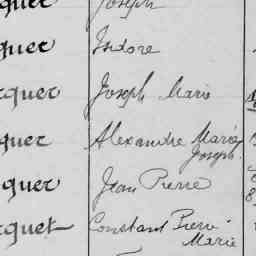 quer Joseph
quer Isidore
cquer Joseph Marie
quer Alexandre Marie
Joseph
quer Jean Pierre
cquet Constant Pierre
Marie